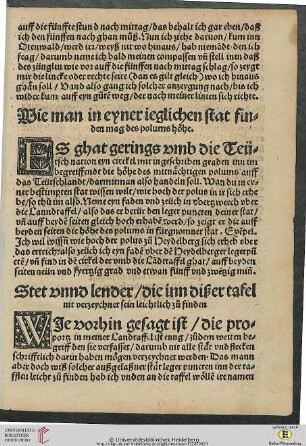 auff die fünffte stund nach mittag/das behalt ich gar eben/daß
ich den fünfften nach ghan můß. Nun ich ziehe daruon/kum inn
Otenwald/werd irr/weyß nit wo hinauß/hab niemādt den ich
frag/darumb neme ich bald meinen compassen vñ stell inen daß
des zünglin wie vor auff die fünfften nach mittag schlag/so zeygt
mir die lincke oder rechte seite (dan es gilt gleich) wo ich hinaus
ghan soll/ Vnd also gang ich solcher anzeygung nach/biß ich
wider kum auff eyn gůte weg/der nach meiner linien sich richte.
Wie man in eyner ieglichen stat fin-
den mag des polums höhe.
ES ghat gerings vmb die Teüt-
sch nation eyn circkel mit ingeschriben graden inn im
begreiffendt die höhe des mitnächtigen polums auff
das Teütschlandt/darmit man also handeln soll. Wan du in ey-
ner bestimpten stat wissen wilt/wie hoch der polus in ir sich erhe
be/so thů im also. Neme eyn faden vnd zeüch in überzwerch über
die Lanndtaffel/also das er berür den leger puncten deiner stat/
vñ auff beyde seiten gleich hoch erhabē werd/so zeygt er dir auff
beyden seiten die höhe des polums in fürgnomner stat. Exēpel.
Ich wil wissen wie hoch der polus zů Heydelberg sich erheb über
das ertrich/also zeüch ich eyn fadē über dē Heydelberger legerpū
cte/vñ find in dē circkel der vmb die Lādtaffel ghat/auff beyden
seiten neün vnd fyertzig grad vnd etwan fünff vnd zwēzig min.
Stet vnnd lender/die inn dißer tafel
nit verzeychnet sein leichtlich zů finden
WJe vorhin gesagt ist/die pro-
portz in meiner Landtaff. list eng/zůdem weiten be-
greiff den sie verfasset/darumb nit alle stāt vnd flecken
schrifftelich darin haben mögen verzeychnet werden. Das mann
aber doch wiß solcher außgelaßner stāt leger puncten inn der ta-
fflen leicht zů finden hab ich vnden an die taffel wölle ire namen
UNIVERSITÄTS-
BIBLIOTHEK
HEIDELBERG
© Universitätsbibliothek Heidelberg